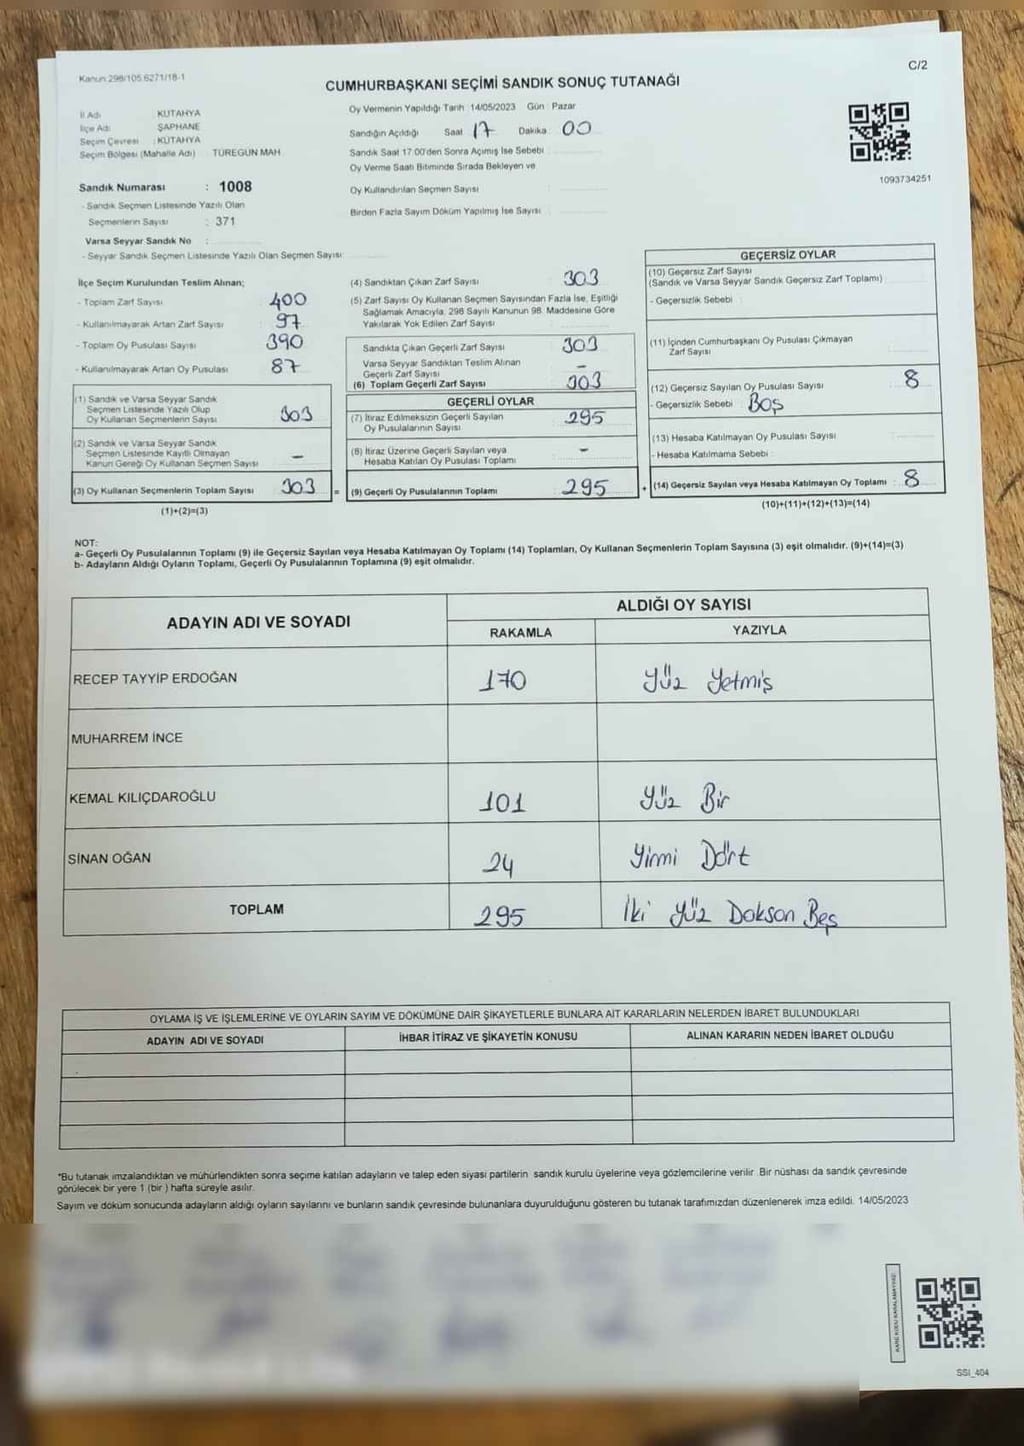 Kanun 298/105.6271/18-1
C/2
CUMHURBAŞKANI SEÇİMİ SANDIK SONUÇ TUTANAĞI
İl Adı KÜTAHYA
İlçe Adı ŞAPHANE
Seçim Çevresi : KÜTAHYA
Seçim Bölgesi (Mahalle Adı) : TÜREGÜN MAH.
Oy Vermenin Yapıldığı Tarih :14/05/2023 Gün : Pazar
Sandığın Açıldığı Saat 17 Dakika 00
Sandık Saat 17.00'den Sonra Açımış İse Sebebi :
Oy Verme Saati Bitiminde Sırada Bekleyen ve
Oy Kullandırılan Seçmen Sayısı :
Birden Fazla Sayım Döküm Yapılmış İse Sayısı :
1093734251
Sandık Numarası : 1008
- Sandık Seçmen Listesinde Yazılı Olan
Seçmenlerin Sayısı : 371
Varsa Seyyar Sandık No :
- Seyyar Sandık Seçmen Listesinde Yazılı Olan Seçmen Sayısı:
İlçe Seçim Kurulundan Teslim Alınan;
- Toplam Zarf Sayısı : 400
- Kullanılmayarak Artan Zarf Sayısı : 97
- Toplam Oy Pusulası Sayısı : 390
- Kullanılmayarak Artan Oy Pusulası : 87
(1) Sandık ve Varsa Seyyar Sandık
Seçmen Listesinde Yazılı Olup
Oy Kullanan Seçmenlerin Sayısı : 303
(2) Sandık ve Varsa Seyyar Sandık
Seçmen Listesinde Kayıtlı Olmayan
Kanun Gereği Oy Kullanan Seçmen Sayısı : -
(3) Oy Kullanan Seçmenlerin Toplam Sayısı : 303
(1)+(2)=(3)
(4) Sandıktan Çıkan Zarf Sayısı : 303
(5) Zarf Sayısı Oy Kullanan Seçmen Sayısından Fazla İse, Eşitliği
Sağlamak Amacıyla, 298 Sayılı Kanunun 98. Maddesine Göre
Yakılarak Yok Edilen Zarf Sayısı :
Sandıkta Çıkan Geçerli Zarf Sayısı : 303
Varsa Seyyar Sandıktan Teslim Alınan
Geçerli Zarf Sayısı : -
(6) Toplam Geçerli Zarf Sayısı : 303
GEÇERLİ OYLAR
(7) İtiraz Edilmeksizin Geçerli Sayılan
Oy Pusulalarının Sayısı : 295
(8) İtiraz Üzerine Geçerli Sayılan veya
Hesaba Katılan Oy Pusulası Toplamı : -
= (9) Geçerli Oy Pusulalarının Toplamı : 295
GEÇERSİZ OYLAR
(10) Geçersiz Zarf Sayısı
(Sandık ve Varsa Seyyar Sandık Geçersiz Zarf Toplamı) :
- Geçersizlik Sebebi :
(11) İçinden Cumhurbaşkanı Oy Pusulası Çıkmayan
Zarf Sayısı :
(12) Geçersiz Sayılan Oy Pusulası Sayısı : 8
- Geçersizlik Sebebi : Boş
(13) Hesaba Katılmayan Oy Pusulası Sayısı :
- Hesaba Katılmama Sebebi :
+ (14) Geçersiz Sayılan veya Hesaba Katılmayan Oy Toplamı : 8
(10)+(11)+(12)+(13)=(14)
NOT:
a- Geçerli Oy Pusulalarının Toplamı (9) ile Geçersiz Sayılan veya Hesaba Katılmayan Oy Toplamı (14) Toplamları, Oy Kullanan Seçmenlerin Toplam Sayısına (3) eşit olmalıdır. (9)+(14)=(3)
b- Adayların Aldığı Oyların Toplamı, Geçerli Oy Pusulalarının Toplamına (9) eşit olmalıdır.
ADAYIN ADI VE SOYADI
ALDIĞI OY SAYISI
RAKAMLA YAZIYLA
RECEP TAYYİP ERDOĞAN 170 Yüz Yetmiş
MUHARREM İNCE
KEMAL KILIÇDAROĞLU 101 Yüz Bir
SİNAN OĞAN 24 Yirmi Dört
TOPLAM 295 İki Yüz Doksan Beş
OYLAMA İŞ VE İŞLEMLERİNE VE OYLARIN SAYIM VE DÖKÜMÜNE DAİR ŞİKAYETLERLE BUNLARA AİT KARARLARIN NELERDEN İBARET BULUNDUKLARI
ADAYIN ADI VE SOYADI İHBAR İTİRAZ VE ŞİKAYETİN KONUSU ALINAN KARARIN NEDEN İBARET OLDUĞU
*Bu tutanak imzalandıktan ve mühürlendikten sonra seçime katılan adayların ve talep eden siyasi partilerin sandık kurulu üyelerine veya gözlemcilerine verilir. Bir nüshası da sandık çevresinde
görülecek bir yere 1 (bir ) hafta süreyle asılır.
Sayım ve döküm sonucunda adayların aldığı oyların sayılarını ve bunların sandık çevresinde bulunanlara duyurulduğunu gösteren bu tutanak tarafımızdan düzenlenerek imza edildi. 14/05/2023
KARE KODU KARALAMAYINIZ!
SSI_404